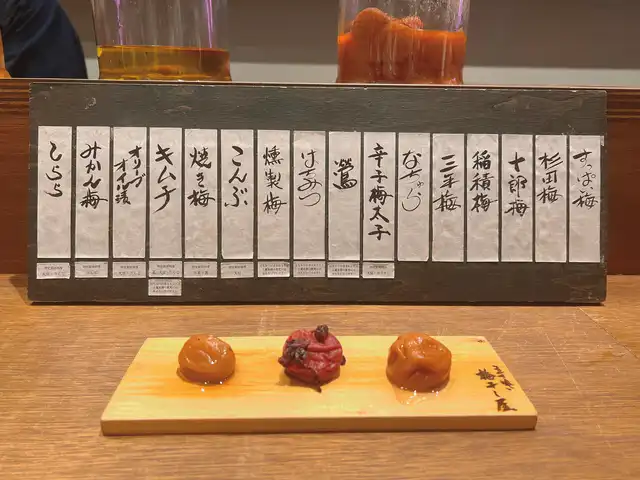 すっぱい梅
杉田梅
十郎梅
稲積梅
三年梅
なでしこ
辛子梅太子
鶯
はちみつ
燻製梅
こんぶ
焼き梅
キムチ
オリーブ
オイル漬
みかん梅
しらら
梅干し屋